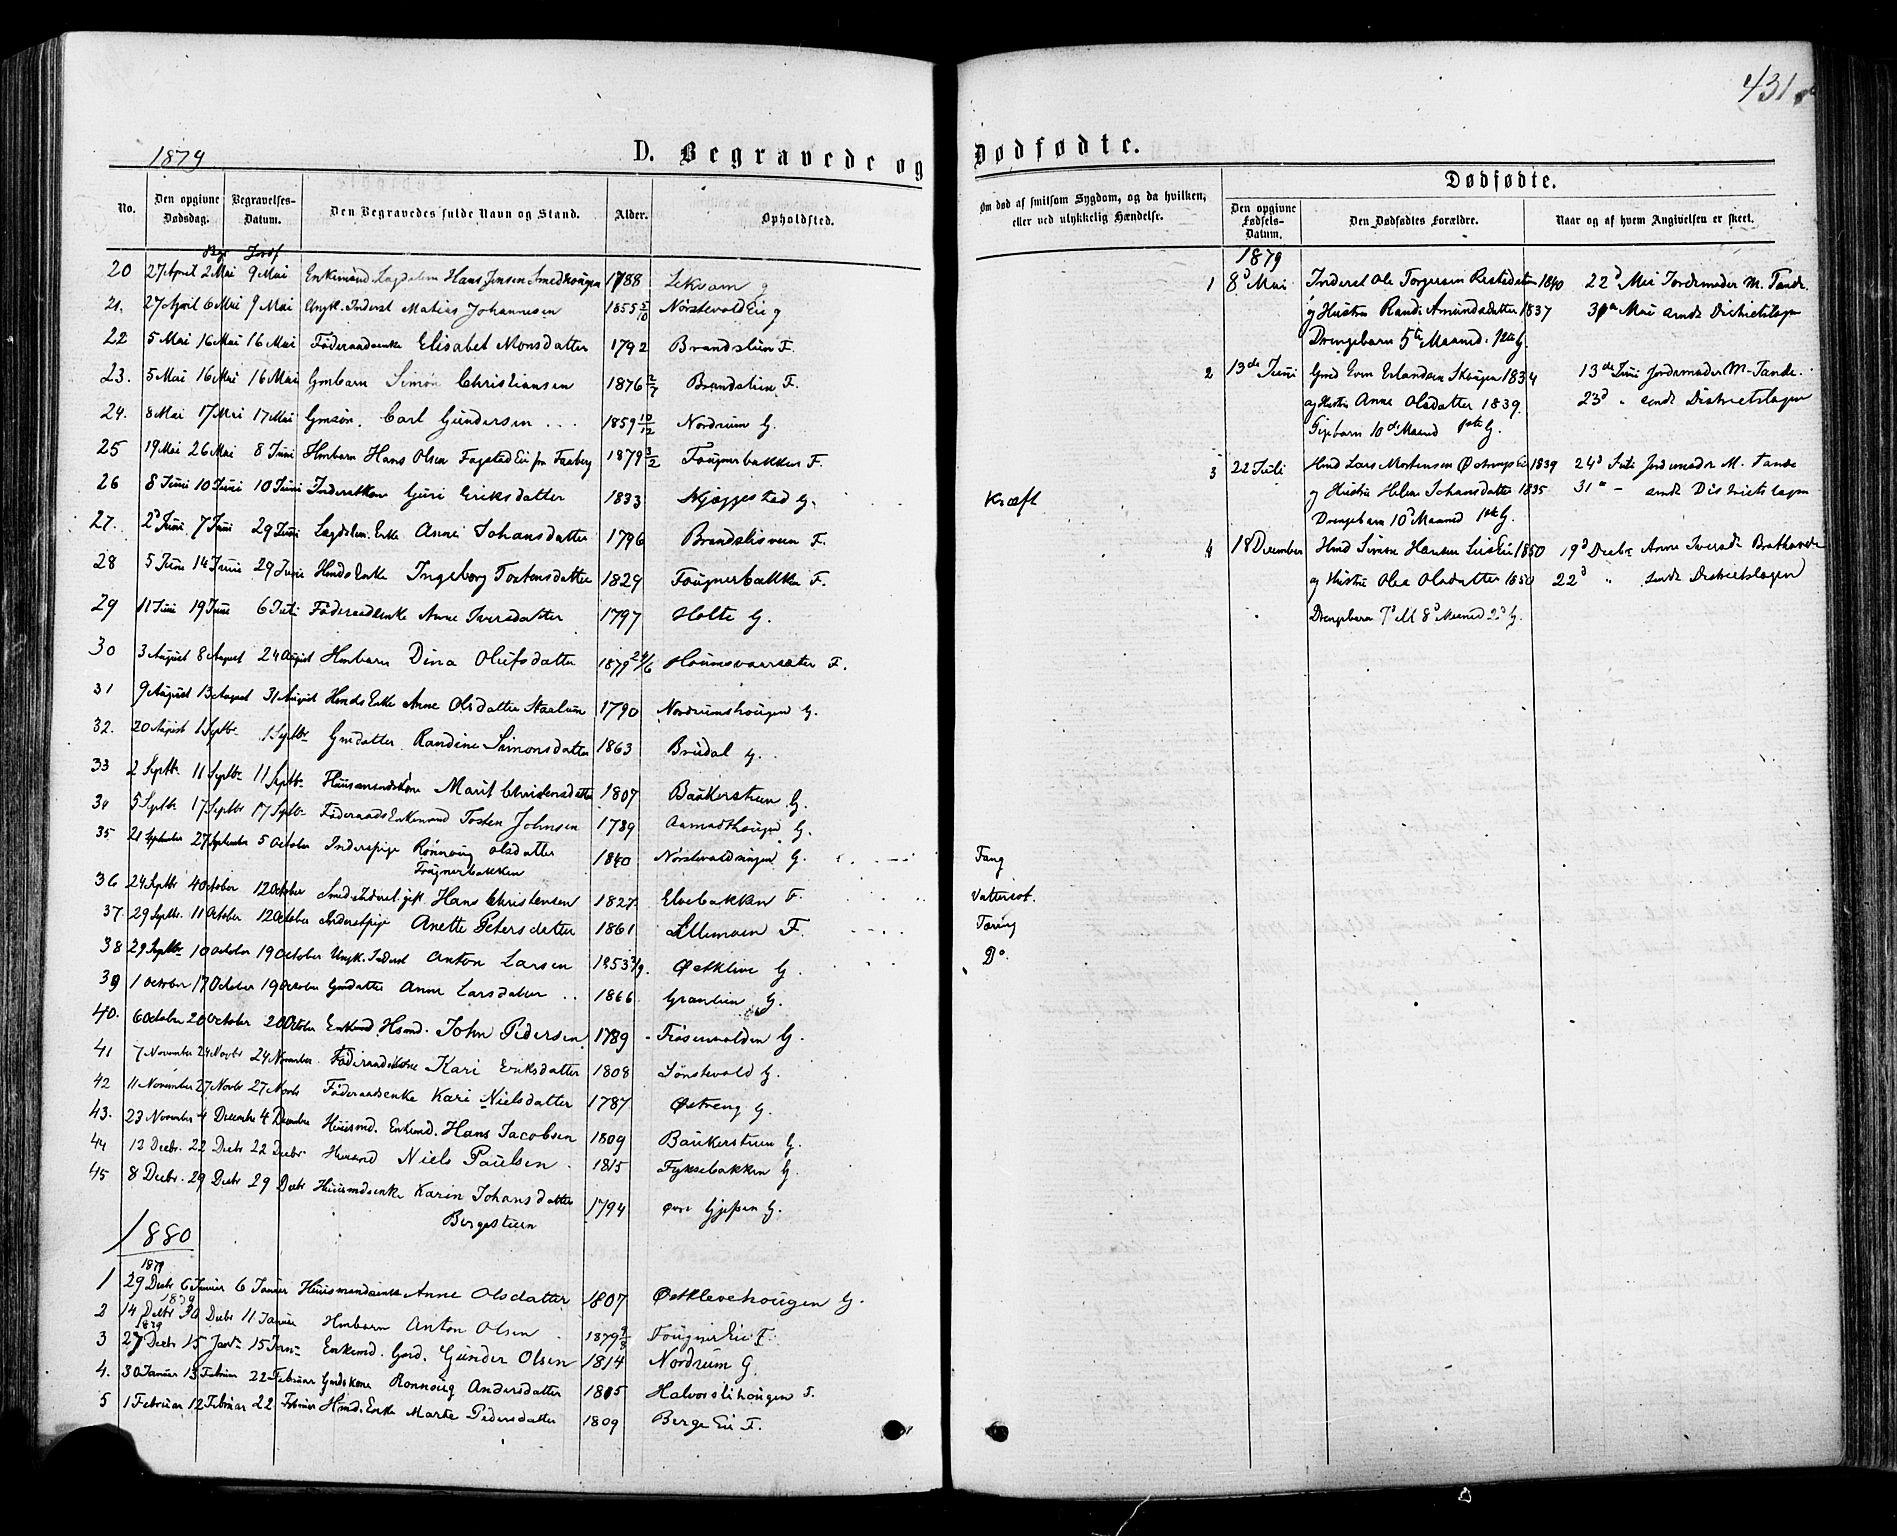 431
1879
D. Begravede og
Dødfødte.
No.
Den opgivne Dødsdag.
Begravelses-Datum.
Den Begravedes fulde Navn og Stand.
Alder.
Opholdsted.
Om død af smitsom Sygdom, og da hvilken, eller ved ulykkelig Hændelse.
Dødfødte.
Den opgivne Fødsels-Datum.
Den Dødfødtes Forældre.
Naar og af hvem Angivelsen er skeet.
Beg Jordf
20 27 April 2 Mai 9 Mai Enkemand Lægdslem Hans Jensen 1788
21. 27 April 6 Mai 9 Mai Ungk. Inderst Matias Johannesen 1855 5/10 Nørstevold Eie G
22 5 Mai 16 Mai 16 Mai Føderaadsenke Elisabet Monsdatter 1792 Brandslien F.
23. 5 Mai 16 Mai 16 Mai Gmbarn Simon Christiansen 1876 2/7 Brandslien F.
24. 8 Mai 17 Mai 17 Mai Gmsøn. Carl Gundersen 1859 12/12 Nordrum G.
25 19 Mai 26 Mai 8 Juni Hmbarn Hans Olsen Fagstad Eie fra Faaberg 1879 3/2 Fougnerbakken F.
26 8 Juni 10 Juni 10 Juni Inderstkone Guri Eriksdatter 1833 Kjæggestad G. Kræft
27. 2d Juni 7 Juni 29 Juni Lægdslem. Enke Anne Johansdatter 1796 F.
28 5 Juni 14 Juni 29 Juni Hmds Enke Ingeborg Tostensdatter 1829 Fougnerbakken F.
29 11 Juni 19 Juni 6 Juli Føderaadsenke Anne Iversdatter 1797 Holte G.
30 3 August 8 August 24 August Hmbarn Dina Olufsdatter 1879 24/6 F.
31 9 August 13 August 31 August Hmds Enke Anne Olsdatter 1790 Nordrumshougen G.
32. 20 August 1 Septbr 1 Septbr Gmdatter Randine Simonsdatter 1863 Brudal G.
33 2 Septbr. 11 Septbr 11 Septbr Huusmandskone Marit Christensdatter 1807 Baukerstuen G.
34 5 Septbr 17 Septbr 17 Septbr Føderaads Enkemand Tosten Johnsen 1789 Aamodthougen G.
35 21 September 27 September 5 October Inderstpige Rønnoug Olsdatter 1840 G. Fang
Fougnerbakken
36 24 Septbr 4 October 12 October Smed Inderst gift Hans Christensen 1827 Elvebakken F. Vattersot.
37. 29 Septbr. 11 October 12 October Inderstpige Anette Petersdatter 1861 Lillemoen F. Tæring
38 29 Septbr 10 October 19 October Ungk. Inderst Anton Larsen 1853 3/9. Østkleve G. Do.
39 1 October 17 October 19 October Gmdatter Anne Larsdatter 1866 Granlien G.
40. 6 October 20 October 20 October Enkemd Hsmd. John Pedersen 1789 G.
41 7 November 24 Novbr 24 November Føderaadskone Kari Eriksdatter 1808 Sønstevold G.
42 11 November 27 Novbr 27 Novbr Føderaadsenke Kari Nielsdatter 1787 Østreng G.
43. 23 November 4 Decembr 4 December Huusmd. Enkemd. Hans Jacobsen 1809 Baukerstuen G.
44 13 Decbr. 22 Decbr 22 Decbr Niels Paulsen 1815 Fyksebakken G.
45 8 Decbr. 29 Decbr 29 Decbr Huusmdsenke Karin Johansdatter 1794 G.
Bergestuen
1880
1879
1 29 Decbr 6 Januar 6 Januar Huusmandsenke Anne Olsdatter 1807 Østklevehougen G.
1879
2 14 Decbr 30 Decbr 11 Januar Hmbarn Anton Olsen 1879 9/8 Fougner Eie F.
1879
3 27 Decbr 15 Janr 15 Janr Enkemd. Gmd. Gunder Olsen 1814 Nordrum G
4. 30 Januar 13 Februar 22 Februar Gmdskone Rønnoug Andersdatter 1805 Halvorslihougen F.
5 1 Februar 12 Februar 22 Februar Hmd. Enke Marte Pedersdatter 1809 Berge Eie F.
1879
1 8d Mai Inderst Ole Torgersen 1840 22d Mai Jordemoder M. Tande.
og Hustru Randi Amundsdatter 1837 Mai sendt Districtslægen
Drengebarn 5te Maaned. 1ste G.
2 13de Juni Gmd Even Erlandsen Skougen 1834 13de Juni Jordemoder M. Tande.
og Hustru Anne Olsdatter 1839. 23d " sendt Districtslægen
Pigebarn 10d Maaned 1ste G.
3 22 Juli Hmd Lars Mortensen Eie 1839 24d Juli Jordemoder M. Tande
og Hustru Helene Johansdatter 1835 31 - sendt Districtslægen
Drengebarn 10d Maaned 1ste G.
4 18 December Hmd Simon Hansen Eie 1850 19d Decbr Anne Iversdr
og Hustru Olea Olsdatter 1850 22d " sendt Districtslægen
Drengebarn 8d Maaned 2d G.